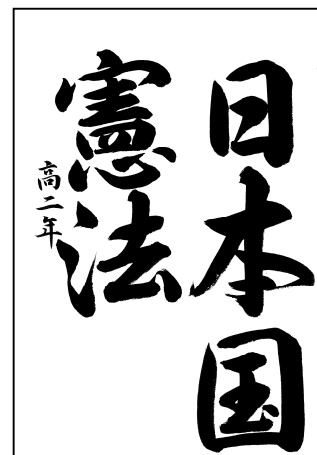 日本国
憲法
高二年